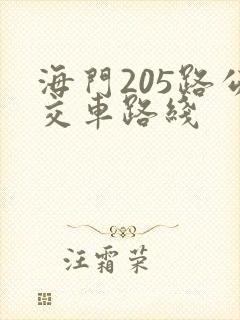 海門205路公
交車路綫
汪霜荣